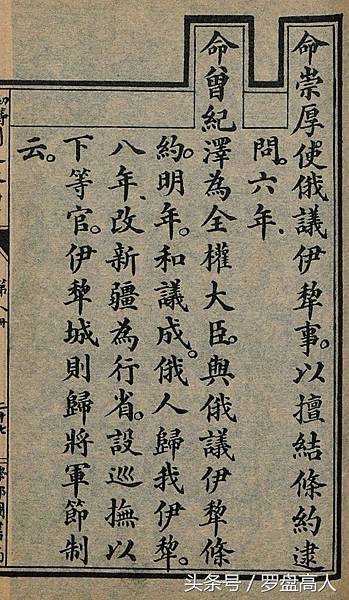 命崇厚使俄議伊犂事。以擅結條約逮
問。六年、
命曾紀澤為全權大臣。與俄議伊犂條
約。明年。和議成。俄人歸我伊犂。
八年、改新疆為行省。設巡撫以
下等官。伊犂城則歸將軍節制
云。
第八冊
頭条号 / 罗盘高人